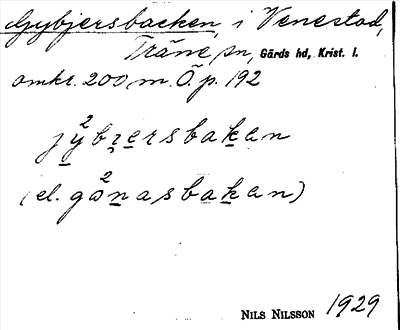 Gybjersbacken, i Venestad,
Träne sn, Gärds hd, Krist. l.
omkr. 200 m. Ö. p. 192
jy²bɪersbaken
(el. gö²nasbaken)
NILS NILSSON 1929